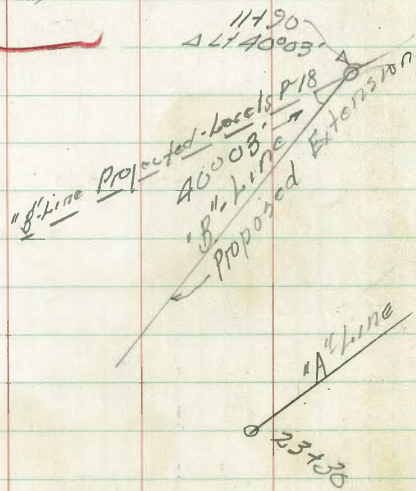 11+90
Δ Lt 40°03'
Δ
"B" Line Projected - Levels P-18
40°03'
"B" Line
Proposed Extension
"A" Line
23+30